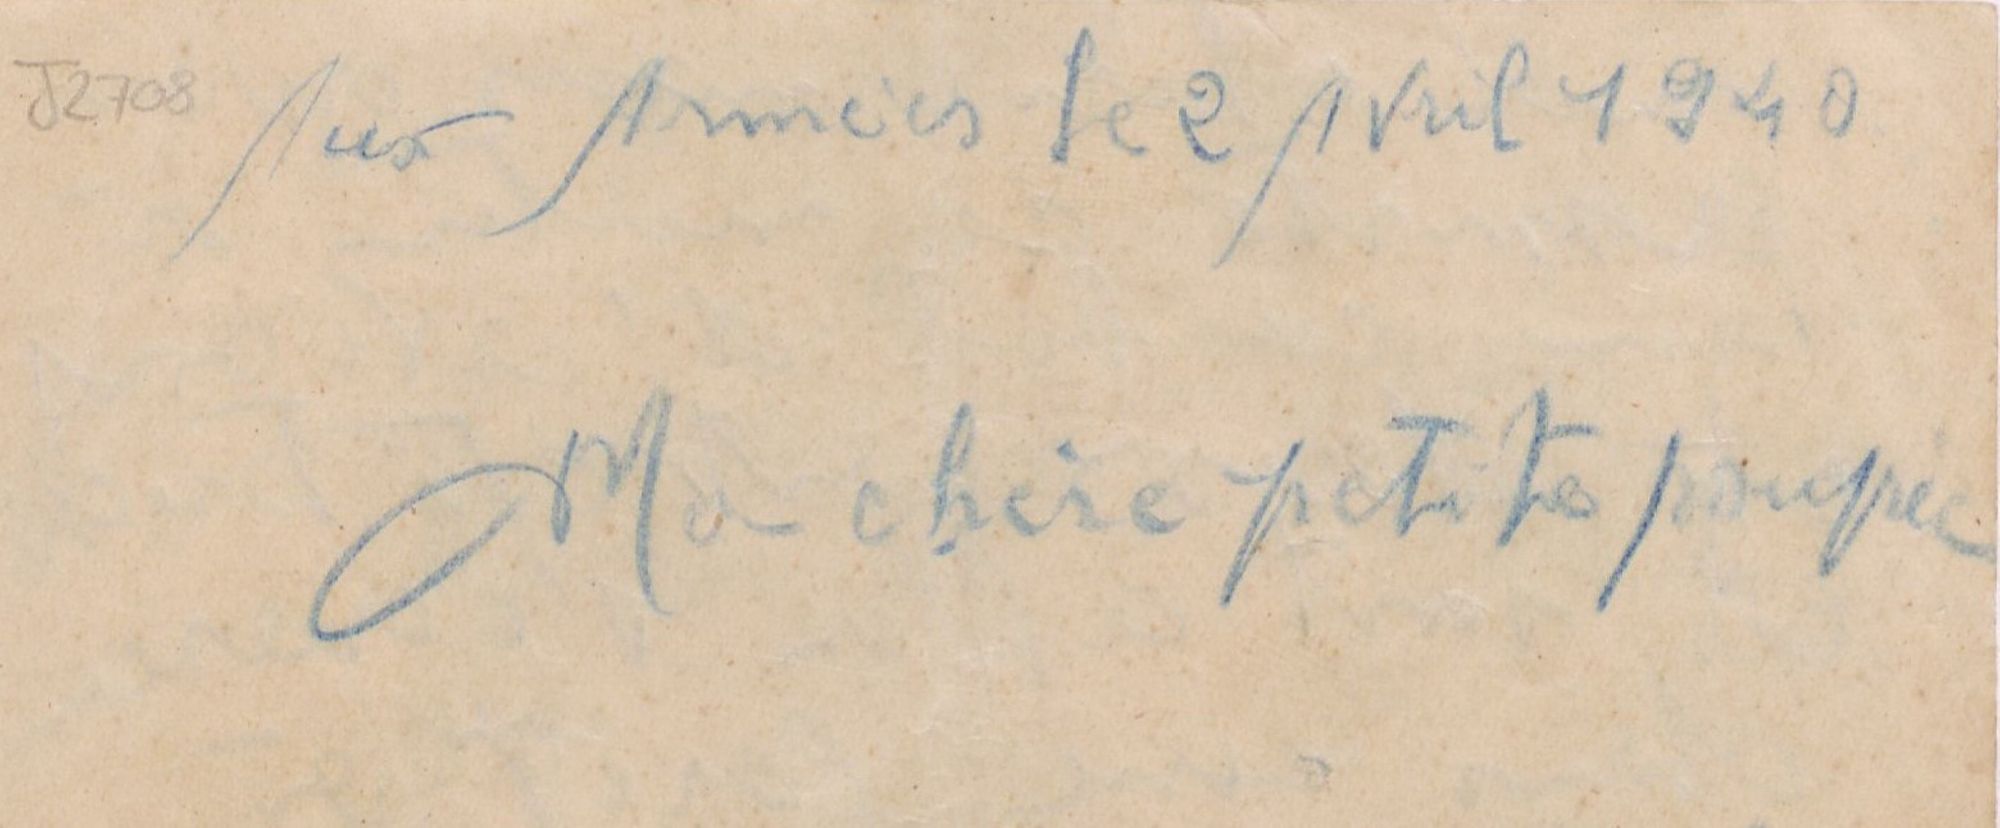 J2708
Aux Armées le 2 Avril 1940
Ma chère petite poupée